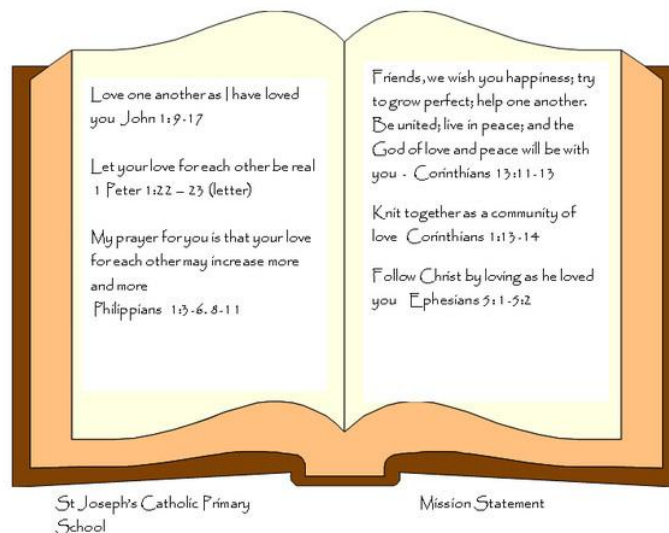 Love one another as I have loved
you John 1:9-17
Let your love for each other be real
1 Peter 1:22 – 23 (letter)
My prayer for you is that your love
for each other may increase more
and more
Philippians 1:3-6. 8-11
Friends, we wish you happiness; try
to grow perfect; help one another.
Be united; live in peace; and the
God of love and peace will be with
you - Corinthians 13:11-13
Knit together as a community of
love Corinthians 1:13-14
Follow Christ by loving as he loved
you Ephesians 5:1-5:2
St Joseph's Catholic Primary
School
Mission Statement